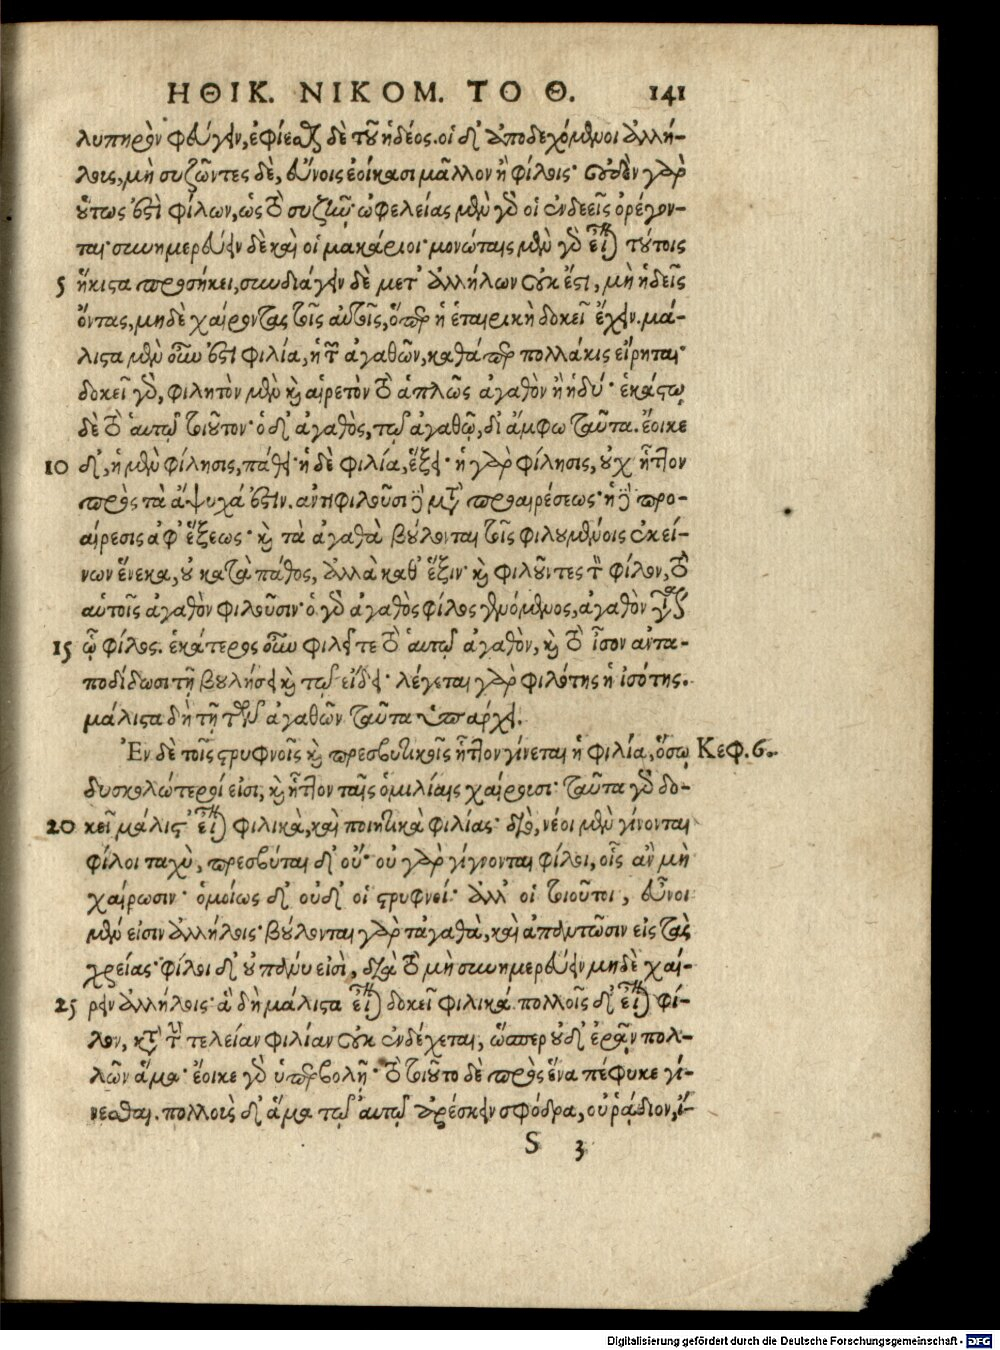 ΗΘΙΚ. ΝΙΚΟΜ. ΤΟ Θ. 141
λυπηρὸν φεύγειν, ἐφίεσθαι δὲ τοῦ ἡδέος. οἱ δ' ἀποδεχόμενοι ἀλλή-
λοις, μὴ συζῶντες δὲ, εὔνοις ἐοίκασι μᾶλλον ἢ φίλοις· οὐδὲν γὰρ
οὕτως ἐστὶ φίλων, ὡς τὸ συζῆν· ὠφελείας μὲν γὰρ οἱ ἐνδεεῖς ὀρέγον-
ται· συνημερεύειν δὲ καὶ οἱ μακάριοι· μονώταις μὲν γὰρ εἶναι τούτοις
5 ἥκιστα προσήκει, συνδιάγειν δὲ μετ' ἀλλήλων οὐκ ἔστι, μὴ ἡδεῖς
ὄντας, μηδὲ χαίροντας τοῖς αὐτοῖς, ὅπερ ἡ ἑταιρικὴ δοκεῖ ἔχειν. μά-
λιστα μὲν οὖν ἐστὶ φιλία, ἡ τῶν ἀγαθῶν, καθάπερ πολλάκις εἴρηται·
δοκεῖ γὰρ, φιλητὸν μὲν καὶ αἱρετὸν τὸ ἁπλῶς ἀγαθὸν ἢ ἡδύ· ἑκάστῳ
δὲ τὸ αὑτῷ τοιοῦτον· ὁ δ' ἀγαθὸς, τῷ ἀγαθῷ, δι' ἄμφω ταῦτα. ἔοικε
10 δ', ἡ μὲν φίλησις, πάθει· ἡ δὲ φιλία, ἕξει· ἡ γὰρ φίλησις, οὐχ ἧττον
πρὸς τὰ ἄψυχά ἐστιν. ἀντιφιλοῦσι δὲ μετὰ προαιρέσεως· ἡ δὲ προ-
αίρεσις ἀφ' ἕξεως· καὶ τὰ ἀγαθὰ βούλονται τοῖς φιλουμένοις ἐκεί-
νων ἕνεκα, οὐ κατὰ πάθος, ἀλλὰ καθ' ἕξιν· καὶ φιλοῦντες τὸν φίλον, τὸ
αὑτοῖς ἀγαθὸν φιλοῦσιν· ὁ γὰρ ἀγαθὸς φίλος γενόμενος, ἀγαθὸν γίνεται
15 ᾧ φίλος. ἑκάτερος οὖν φιλεῖ τε τὸ αὑτῷ ἀγαθὸν, καὶ τὸ ἴσον ἀντα-
ποδίδωσι τῇ βουλήσει καὶ τῷ εἴδει· λέγεται γὰρ φιλότης ἡ ἰσότης.
μάλιστα δὴ τῇ τῶν ἀγαθῶν ταῦτα ὑπάρχει.
Ἐν δὲ τοῖς στρυφνοῖς καὶ πρεσβυτικοῖς ἧττον γίνεται ἡ φιλία, ὅσῳ Κεφ. 6.
δυσκολώτεροί εἰσι, καὶ ἧττον ταῖς ὁμιλίαις χαίρουσι· ταῦτα γὰρ δο-
20 κεῖ μάλιστ' εἶναι φιλικὰ, καὶ ποιητικὰ φιλίας· διὸ, νέοι μὲν γίνονται
φίλοι ταχὺ, πρεσβύται δ' οὔ· οὐ γὰρ γίγνονται φίλοι, οἷς ἂν μὴ
χαίρωσιν· ὁμοίως δ' οὐδ' οἱ στρυφνοί· ἀλλ' οἱ τοιοῦτοι, εὖνοι
μέν εἰσιν ἀλλήλοις· βούλονται γὰρ τἀγαθὰ, καὶ ἀπαντῶσιν εἰς τὰς
χρείας· φίλοι δ' οὐ πάνυ εἰσὶ, διὰ τὸ μὴ συνημερεύειν μηδὲ χαί-
25 ρειν ἀλλήλοις· ἃ δὴ μάλιστα εἶναι δοκεῖ φιλικά. πολλοῖς δ' εἶναι φί-
λον, κατὰ τὴν τελείαν φιλίαν οὐκ ἐνδέχεται, ὥσπερ οὐδ' ἐρᾷν πολ-
λῶν ἅμα· ἔοικε γὰρ ὑπερβολῇ· τὸ τοιοῦτο δὲ πρὸς ἕνα πέφυκε γί-
νεσθαι. πολλοὺς δ' ἅμα τῷ αὐτῷ ἀρέσκειν σφόδρα, οὐ ῥᾴδιον, ἴ-
S 3
Digitalisierung gefördert durch die Deutsche Forschungsgemeinschaft - DFG